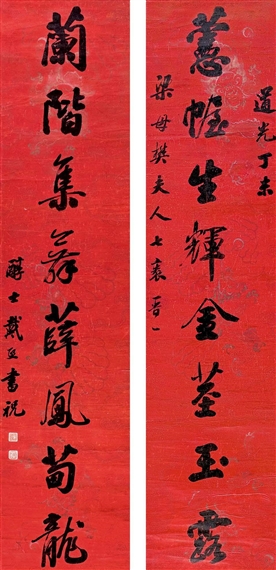 道光丁未
蕙幄生輝金莖玉露
梁母樊夫人七袠晉一
蘭階集薛鳳荀龍
醇士戴熙書祝